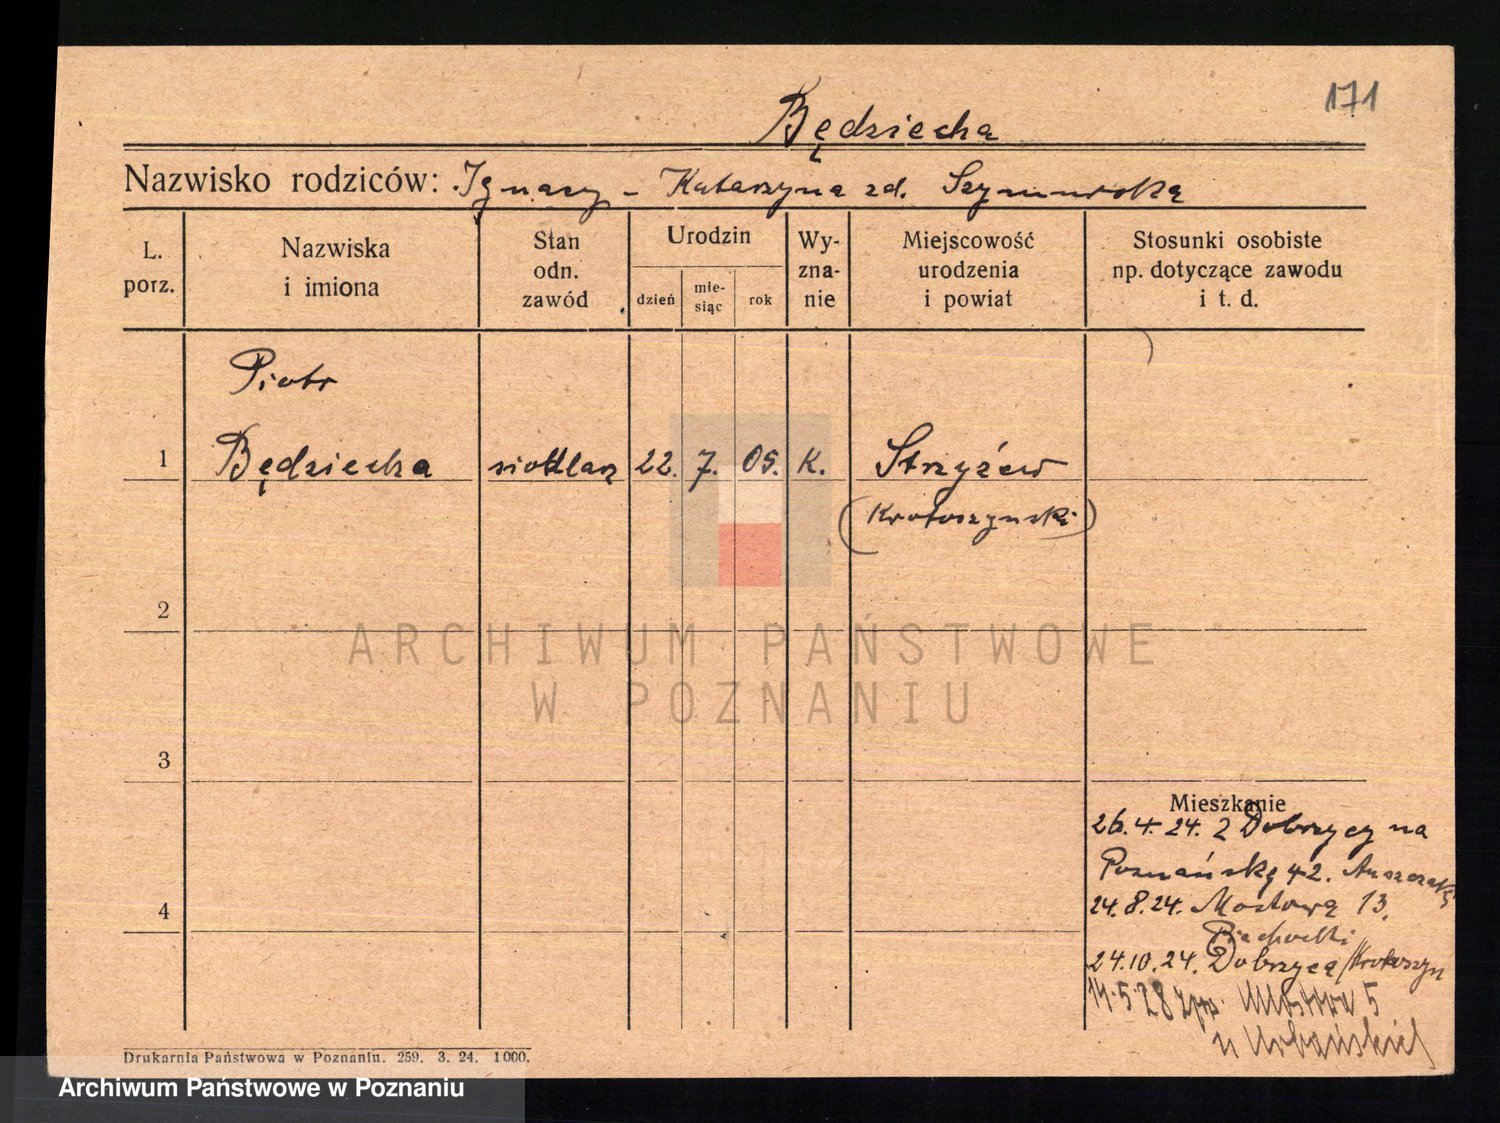 171
Będziecha
Nazwisko rodziców: Ignacy - Katarzyna zd. Szymurska
L. porz.
Nazwiska i imiona
Stan odn. zawód
Urodzin
dzień
mie-siąc
rok
Wy-zna-nie
Miejscowość urodzenia i powiat
Stosunki osobiste np. dotyczące zawodu i t. d.
Piotr
1 Będziecha siodlarz 22. 7. 05. K. Strzyżew
(Krotoszyński)
2
3
4
Mieszkanie
26.4.24. z Dobrzycy na
Poznańską 42.
24.8.24. Mostową 13.
Piechocki
24.10.24. Dobrzyca/Krotoszyn
14.5.28 Mostowa 5
u Urbańskiej
Drukarnia Państwowa w Poznaniu. 259. 3. 24. 1000.
ARCHIWUM PAŃSTWOWE
W POZNANIU
Archiwum Państwowe w Poznaniu